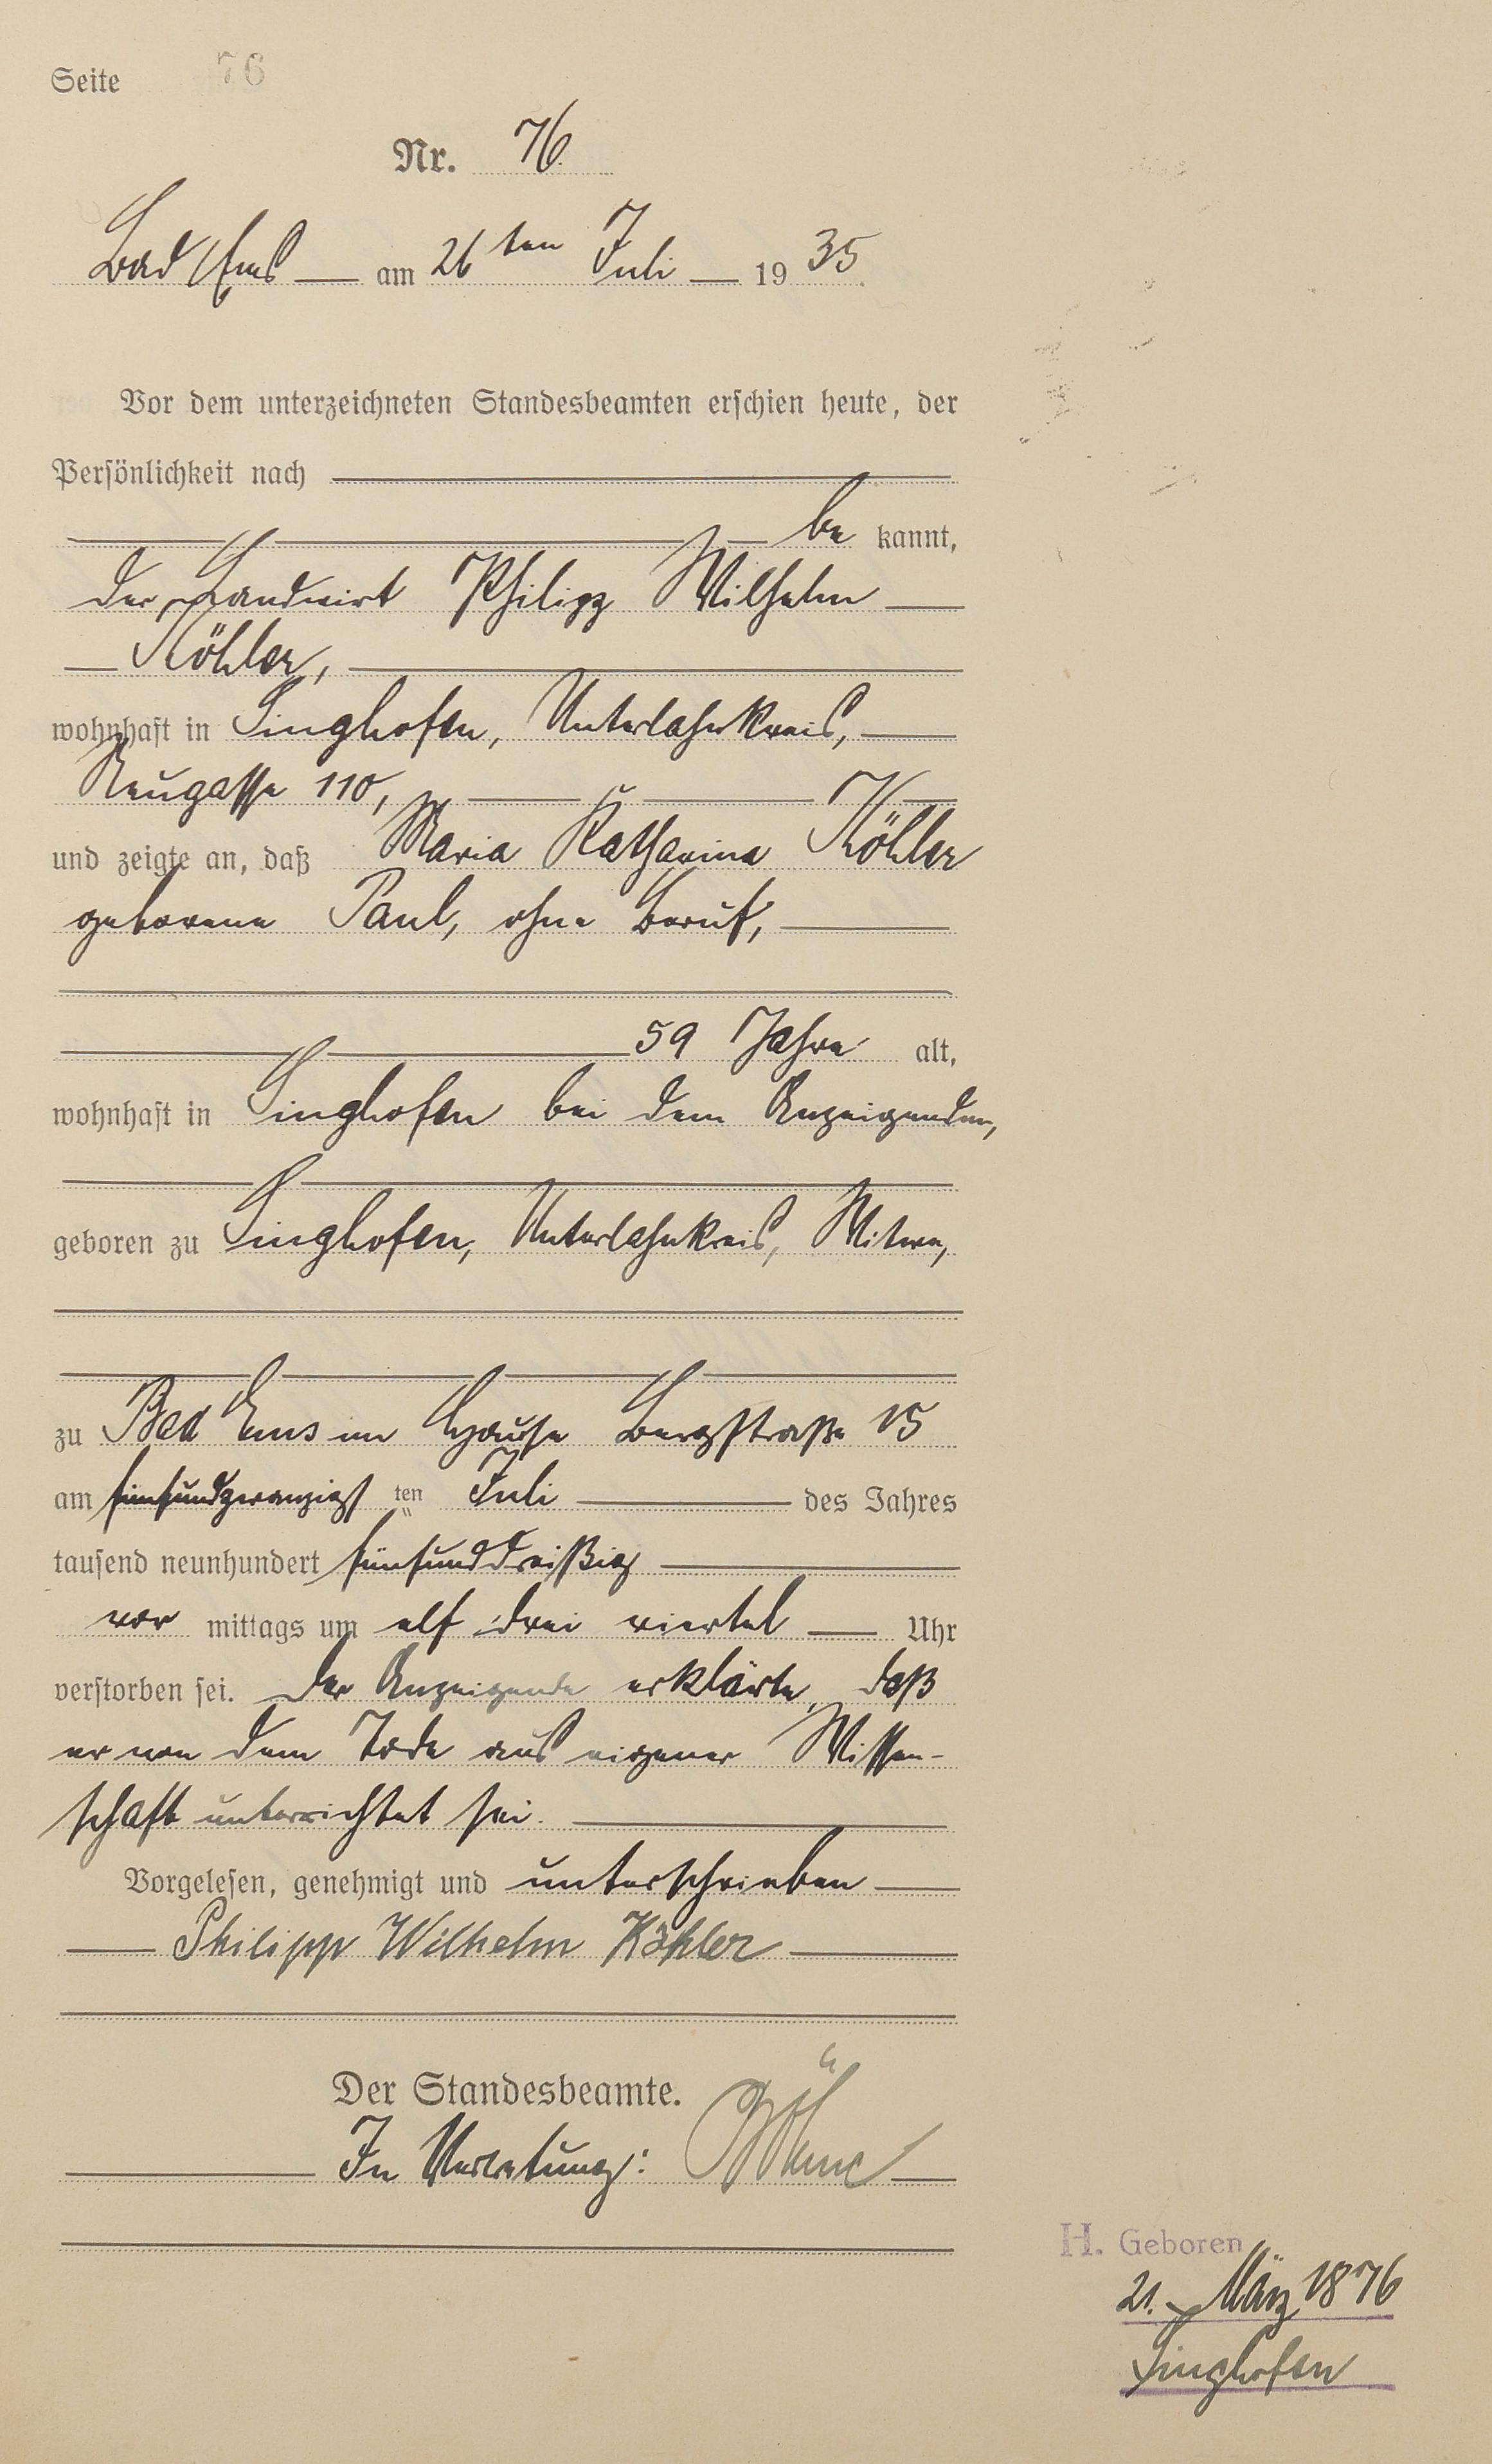 Seite 76
Nr. 76.
Bad Ems — am 26ten Juli — 1935.
Vor dem unterzeichneten Standesbeamten erschien heute, der
Persönlichkeit nach
be kannt,
der Landwirt Philipp Wilhelm —
— Köhler,
wohnhaft in Singhofen, Unterlahnkreis, —
Neugasse 110,
und zeigte an, daß Maria Katharina Köhler
geborene Paul, ohne Beruf, —
59 Jahre alt,
wohnhaft in Singhofen bei dem Anzeigenden,
geboren zu Singhofen, Unterlahnkreis, Witwe,
zu Bad Ems im Hause Bergstraße 15
am fünfundzwanzigsten Juli — des Jahres
tausend neunhundert fünfunddreißig —
vor mittags um elf drei viertel — Uhr
verstorben sei. Der Anzeigende erklärte, daß
er von dem Tode aus eigener Wissen-
schaft unterrichtet sei. —
Vorgelesen, genehmigt und unterschrieben —
— Philipp Wilhelm Köhler —
Der Standesbeamte.
In Vertretung:
H. Geboren
21. März 1876
Singhofen